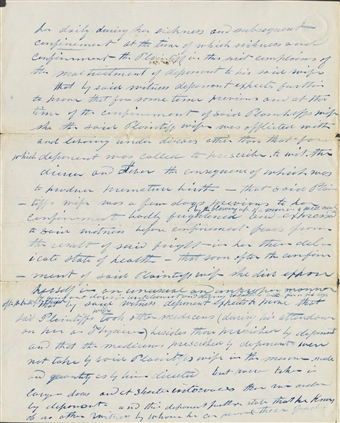 her daily during her sickness and subsequent
confinement at the time of which sickness and
confinement the Plaintiff in this suit complains of
the maltreatment of deponent to his said wife
that by said witness deponent expects further
to prove that for some time previous and at the
time of the confinement of said Plaintiffs wife
she the said Plaintiffs wife was afflicted with
and laboring under disease other than that for
which deponent was called to prescribe, to wit, the
disease and the consequence of which was
to produce premature birth – that said Plain
-tiffs wife was a few days previous to her
confinement badly frightened and expressed
to said witness before confinement fears from
the result of said fright in her then del-
icate state of health – that soon after the confine
-ment of said Plaintiffs wife she did expose
herself in an unusual and improper manner
by said witness deponent expects to prove that
said Plaintiffs wife took other medicines during his attendance
on her as Physician besides those prescribed by deponent
and that the medicines prescribed by deponent were
not taken by said Plaintiffs wife in the manner, mode
and quantity as by him directed but were taken in
large doses and at shorter intervals than ordered
by deponent and this deponent further states that he knows
of no other witness by whom he can prove these facts